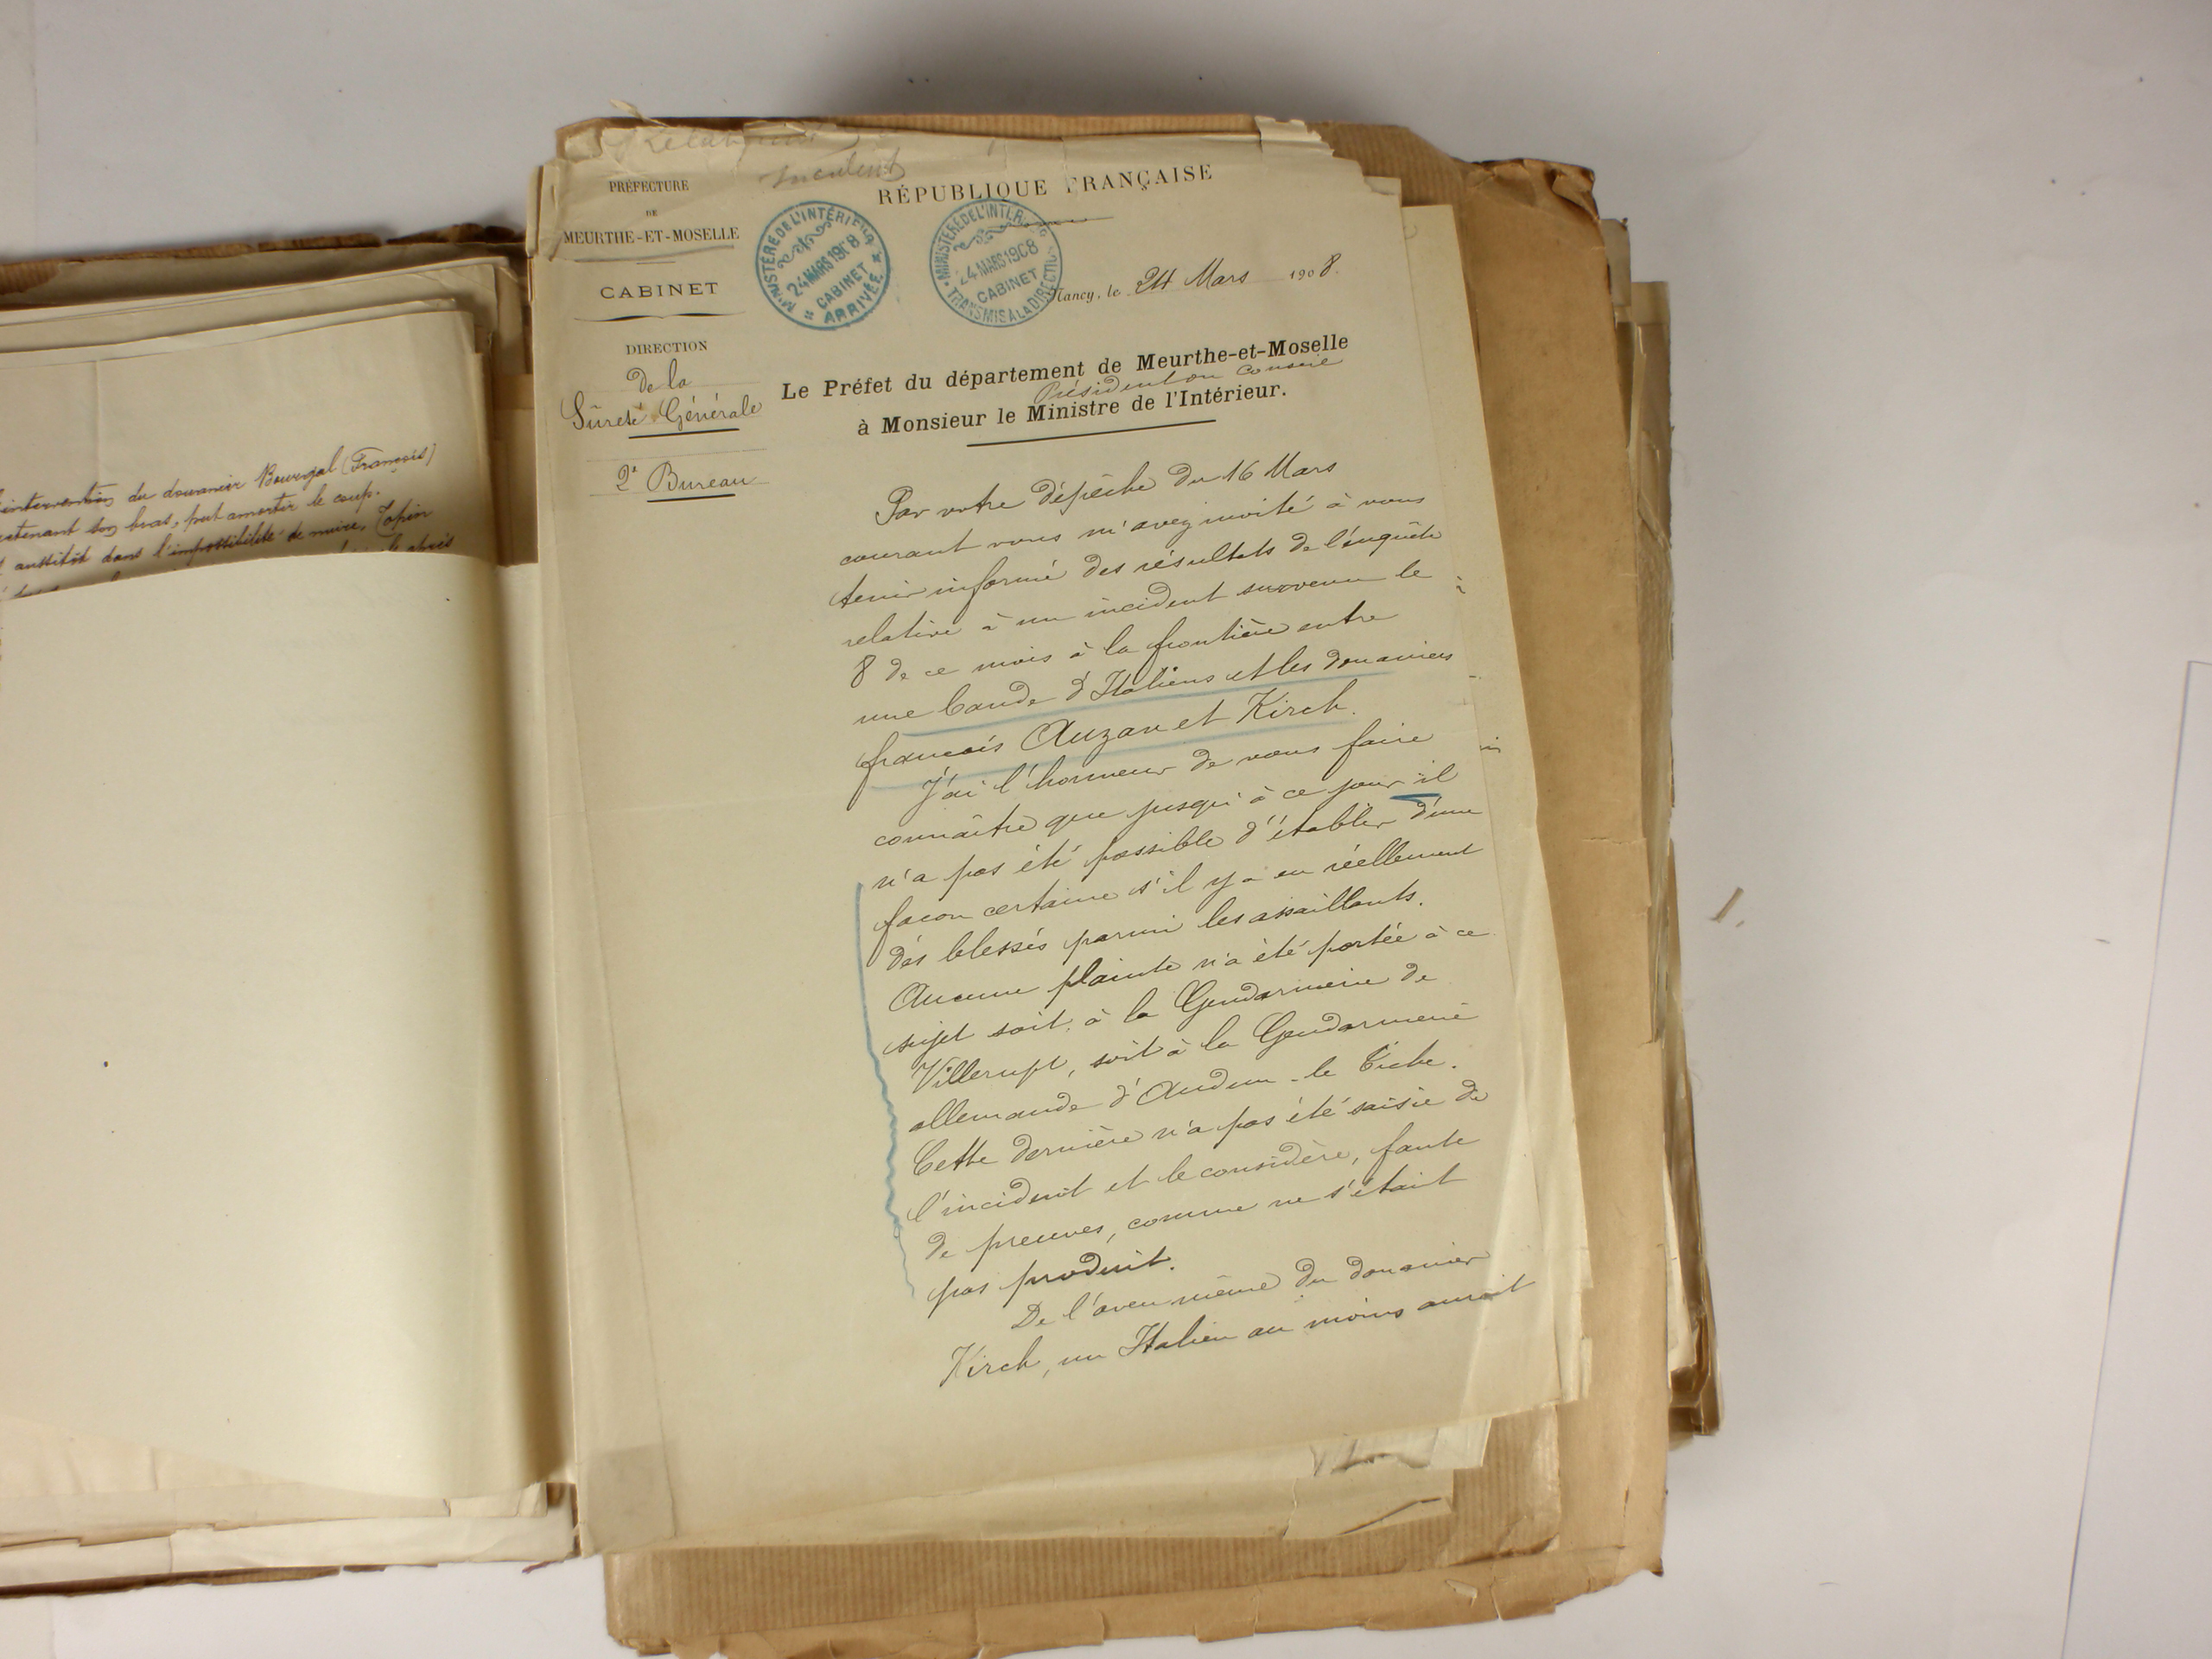 intervention du douanier Bourgal (François)
retenant son bras, put amortir le coup.
aussitôt dans l'impossibilité de nuire, Topin
Incident
PRÉFECTURE
DE
MEURTHE-ET-MOSELLE
CABINET
DIRECTION
de la
Sûreté Générale
2e Bureau
RÉPUBLIQUE FRANÇAISE
MINISTÈRE DE L'INTÉRIEUR
24 MARS 1908
CABINET
ARRIVÉE
MINISTÈRE DE L'INTÉR
24 MARS 1908
CABINET
TRANSMIS A LA DIRECTION
Nancy, le 24 Mars 1908.
Le Préfet du département de Meurthe-et-Moselle
Président du Conseil
à Monsieur le Ministre de l'Intérieur.
Par votre dépêche du 16 Mars
courant vous m'avez invité à vous
tenir informé des résultats de l'enquête
relative à un incident survenu le
8 de ce mois à la frontière entre
une bande d'Italiens et les douaniers
français Auzan et Kirch.
J'ai l'honneur de vous faire
connaître que jusqu'à ce jour il
n'a pas été possible d'établir d'une
façon certaine s'il y a eu réellement
des blessés parmi les assaillants.
Aucune plainte n'a été portée à ce
sujet soit, à la Gendarmerie de
Villerupt, soit à la Gendarmerie
allemande d'Audun-le Tiche.
Cette dernière n'a pas été saisie de
l'incident et le considère, faute
de preuves, comme ne s'étant
pas produit.
De l'aveu même du douanier
Kirch, un Italien au moins aurait